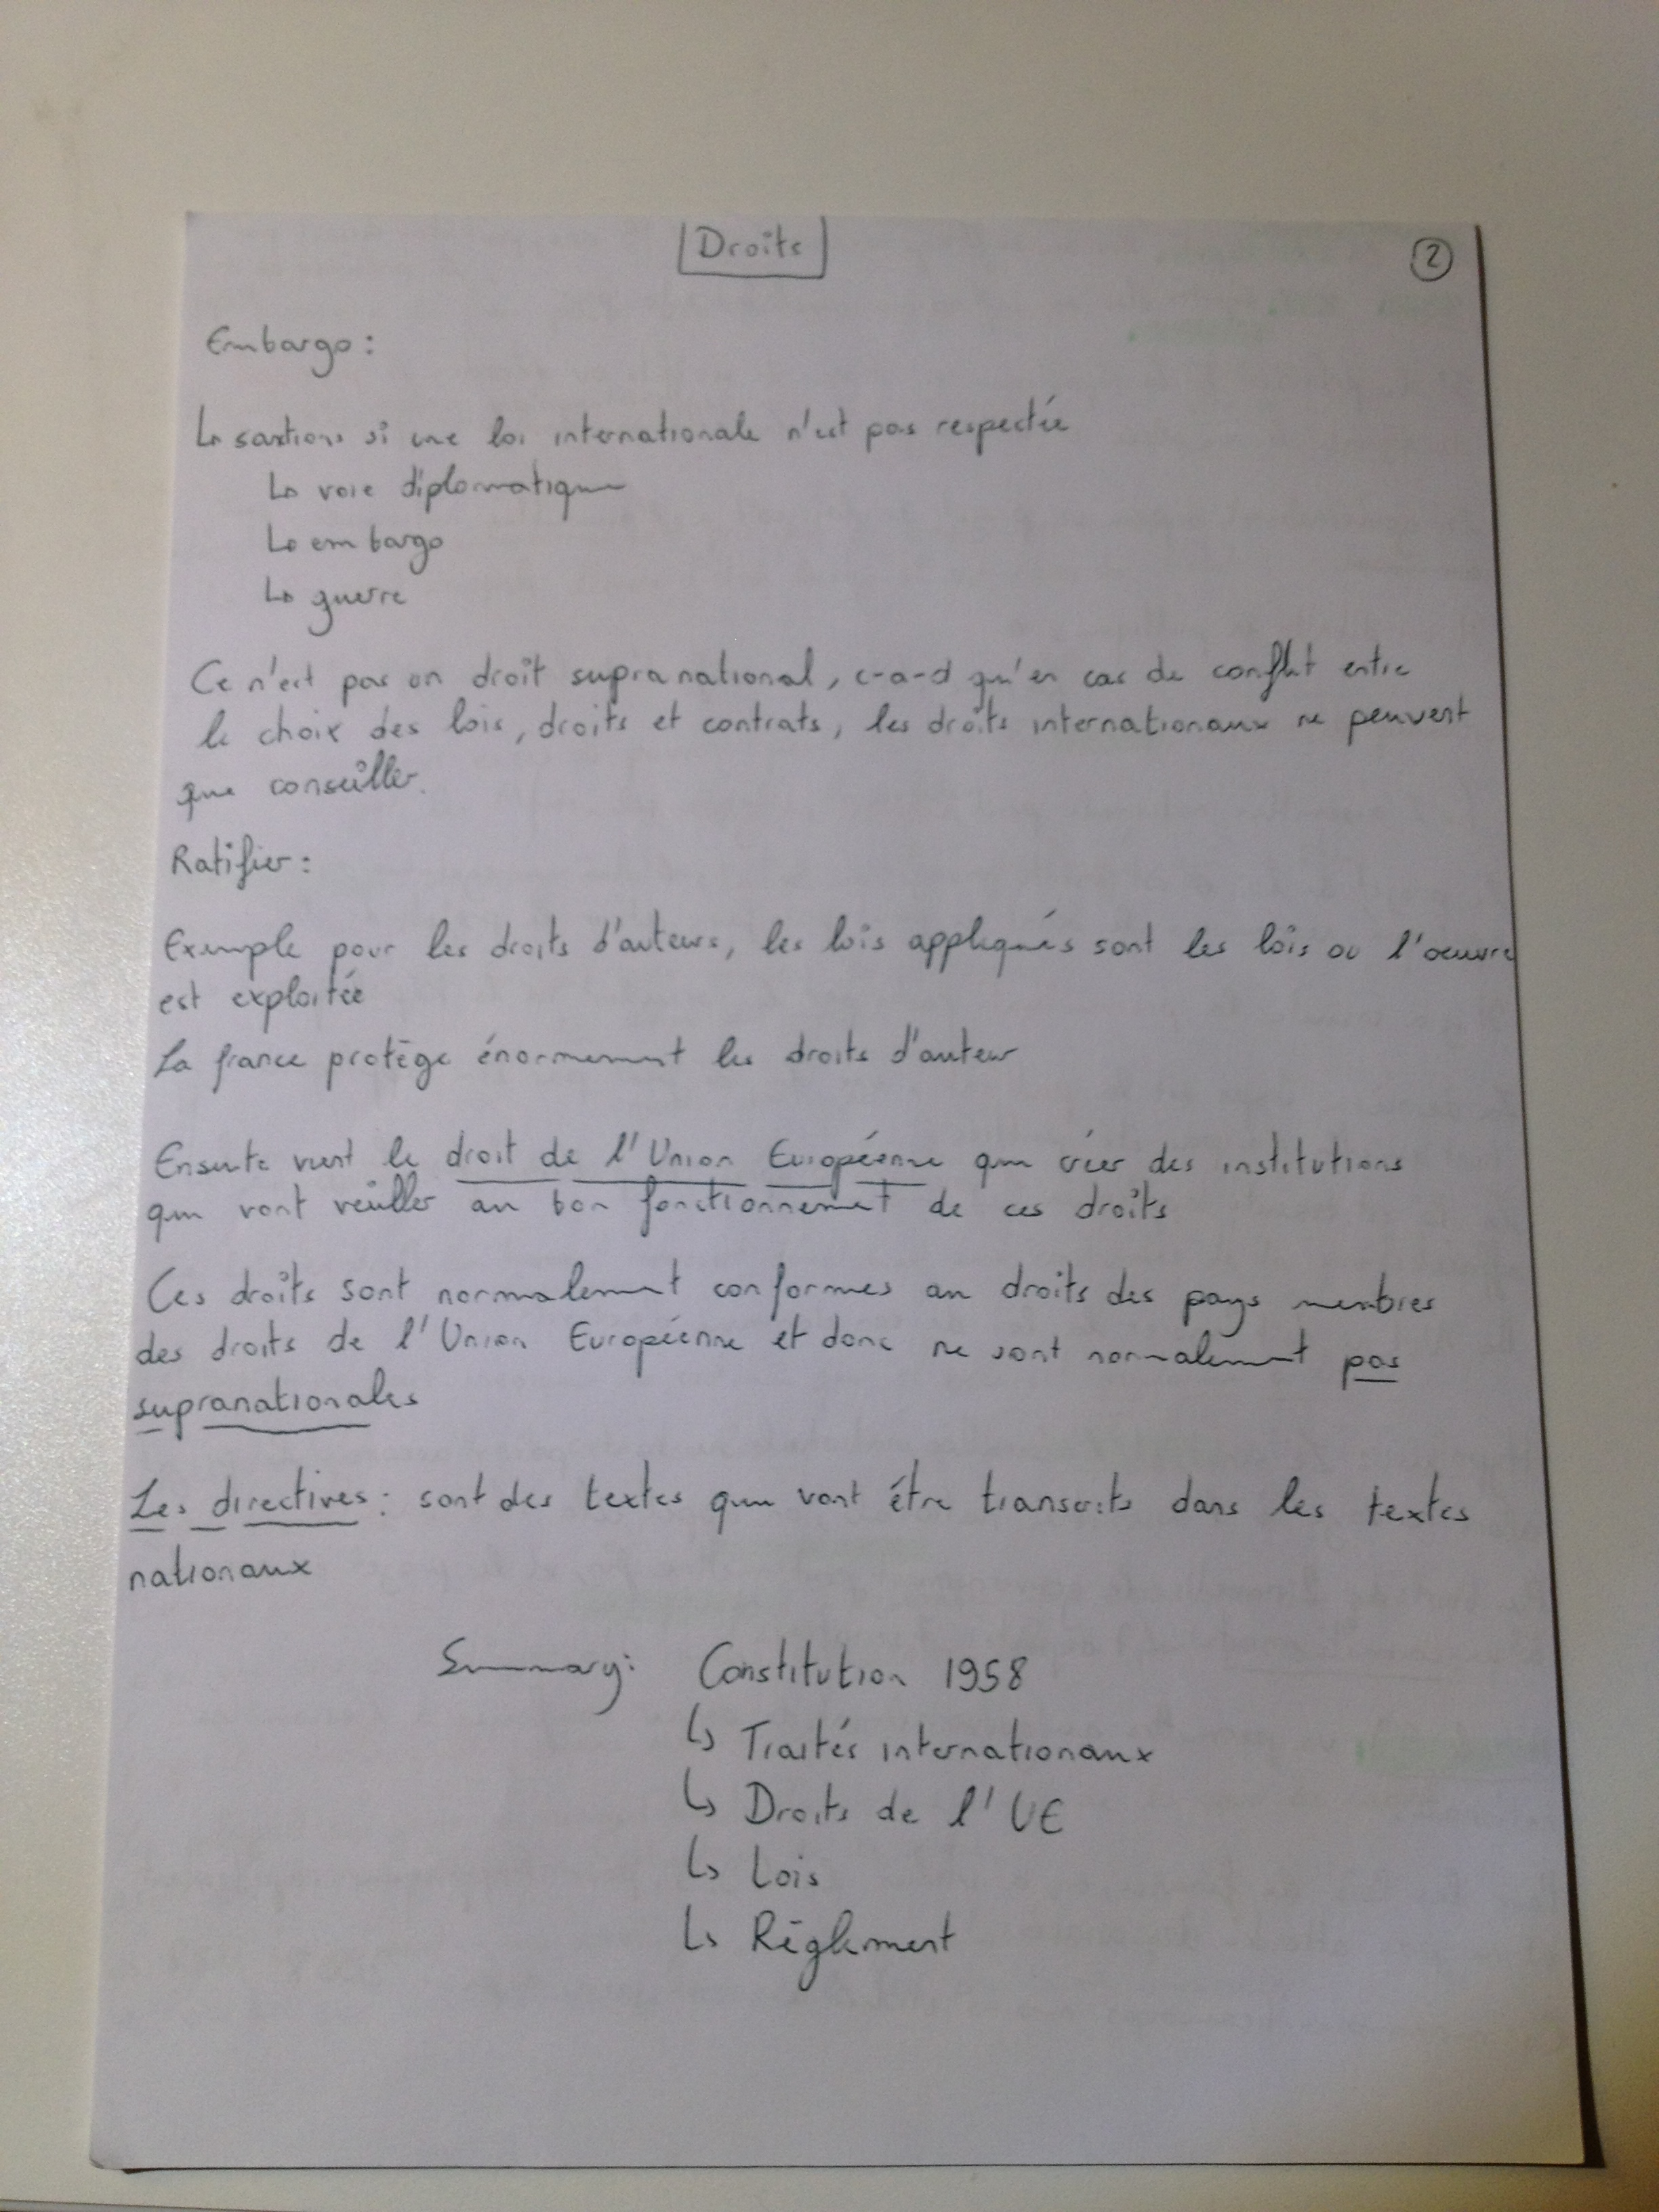 Droits
2
Embargo :
↳ sanctions si une loi internationale n'est pas respectée
↳ voie diplomatique
↳ embargo
↳ guerre
Ce n'est pas un droit supranational, c-a-d qu'en cas de conflit entre
le choix des lois, droits et contrats, les droits internationaux ne peuvent
que conseiller.
Ratifier :
Exemple pour les droits d'auteurs, les lois appliqués sont les lois ou l'oeuvre
est exploitée
La france protège énormement les droits d'auteur
Ensuite vient le droit de l'Union Européenne qui créer des institutions
qui vont veiller au bon fonctionnement de ces droits
Ces droits sont normalement conformes au droits des pays membres
des droits de l'Union Européenne et donc ne sont normalement pas
supranationales
Les directives : sont des textes qui vont être transcrits dans les textes
nationaux
Summary: Constitution 1958
↳ Traités internationaux
↳ Droits de l'UE
↳ Lois
↳ Règlement